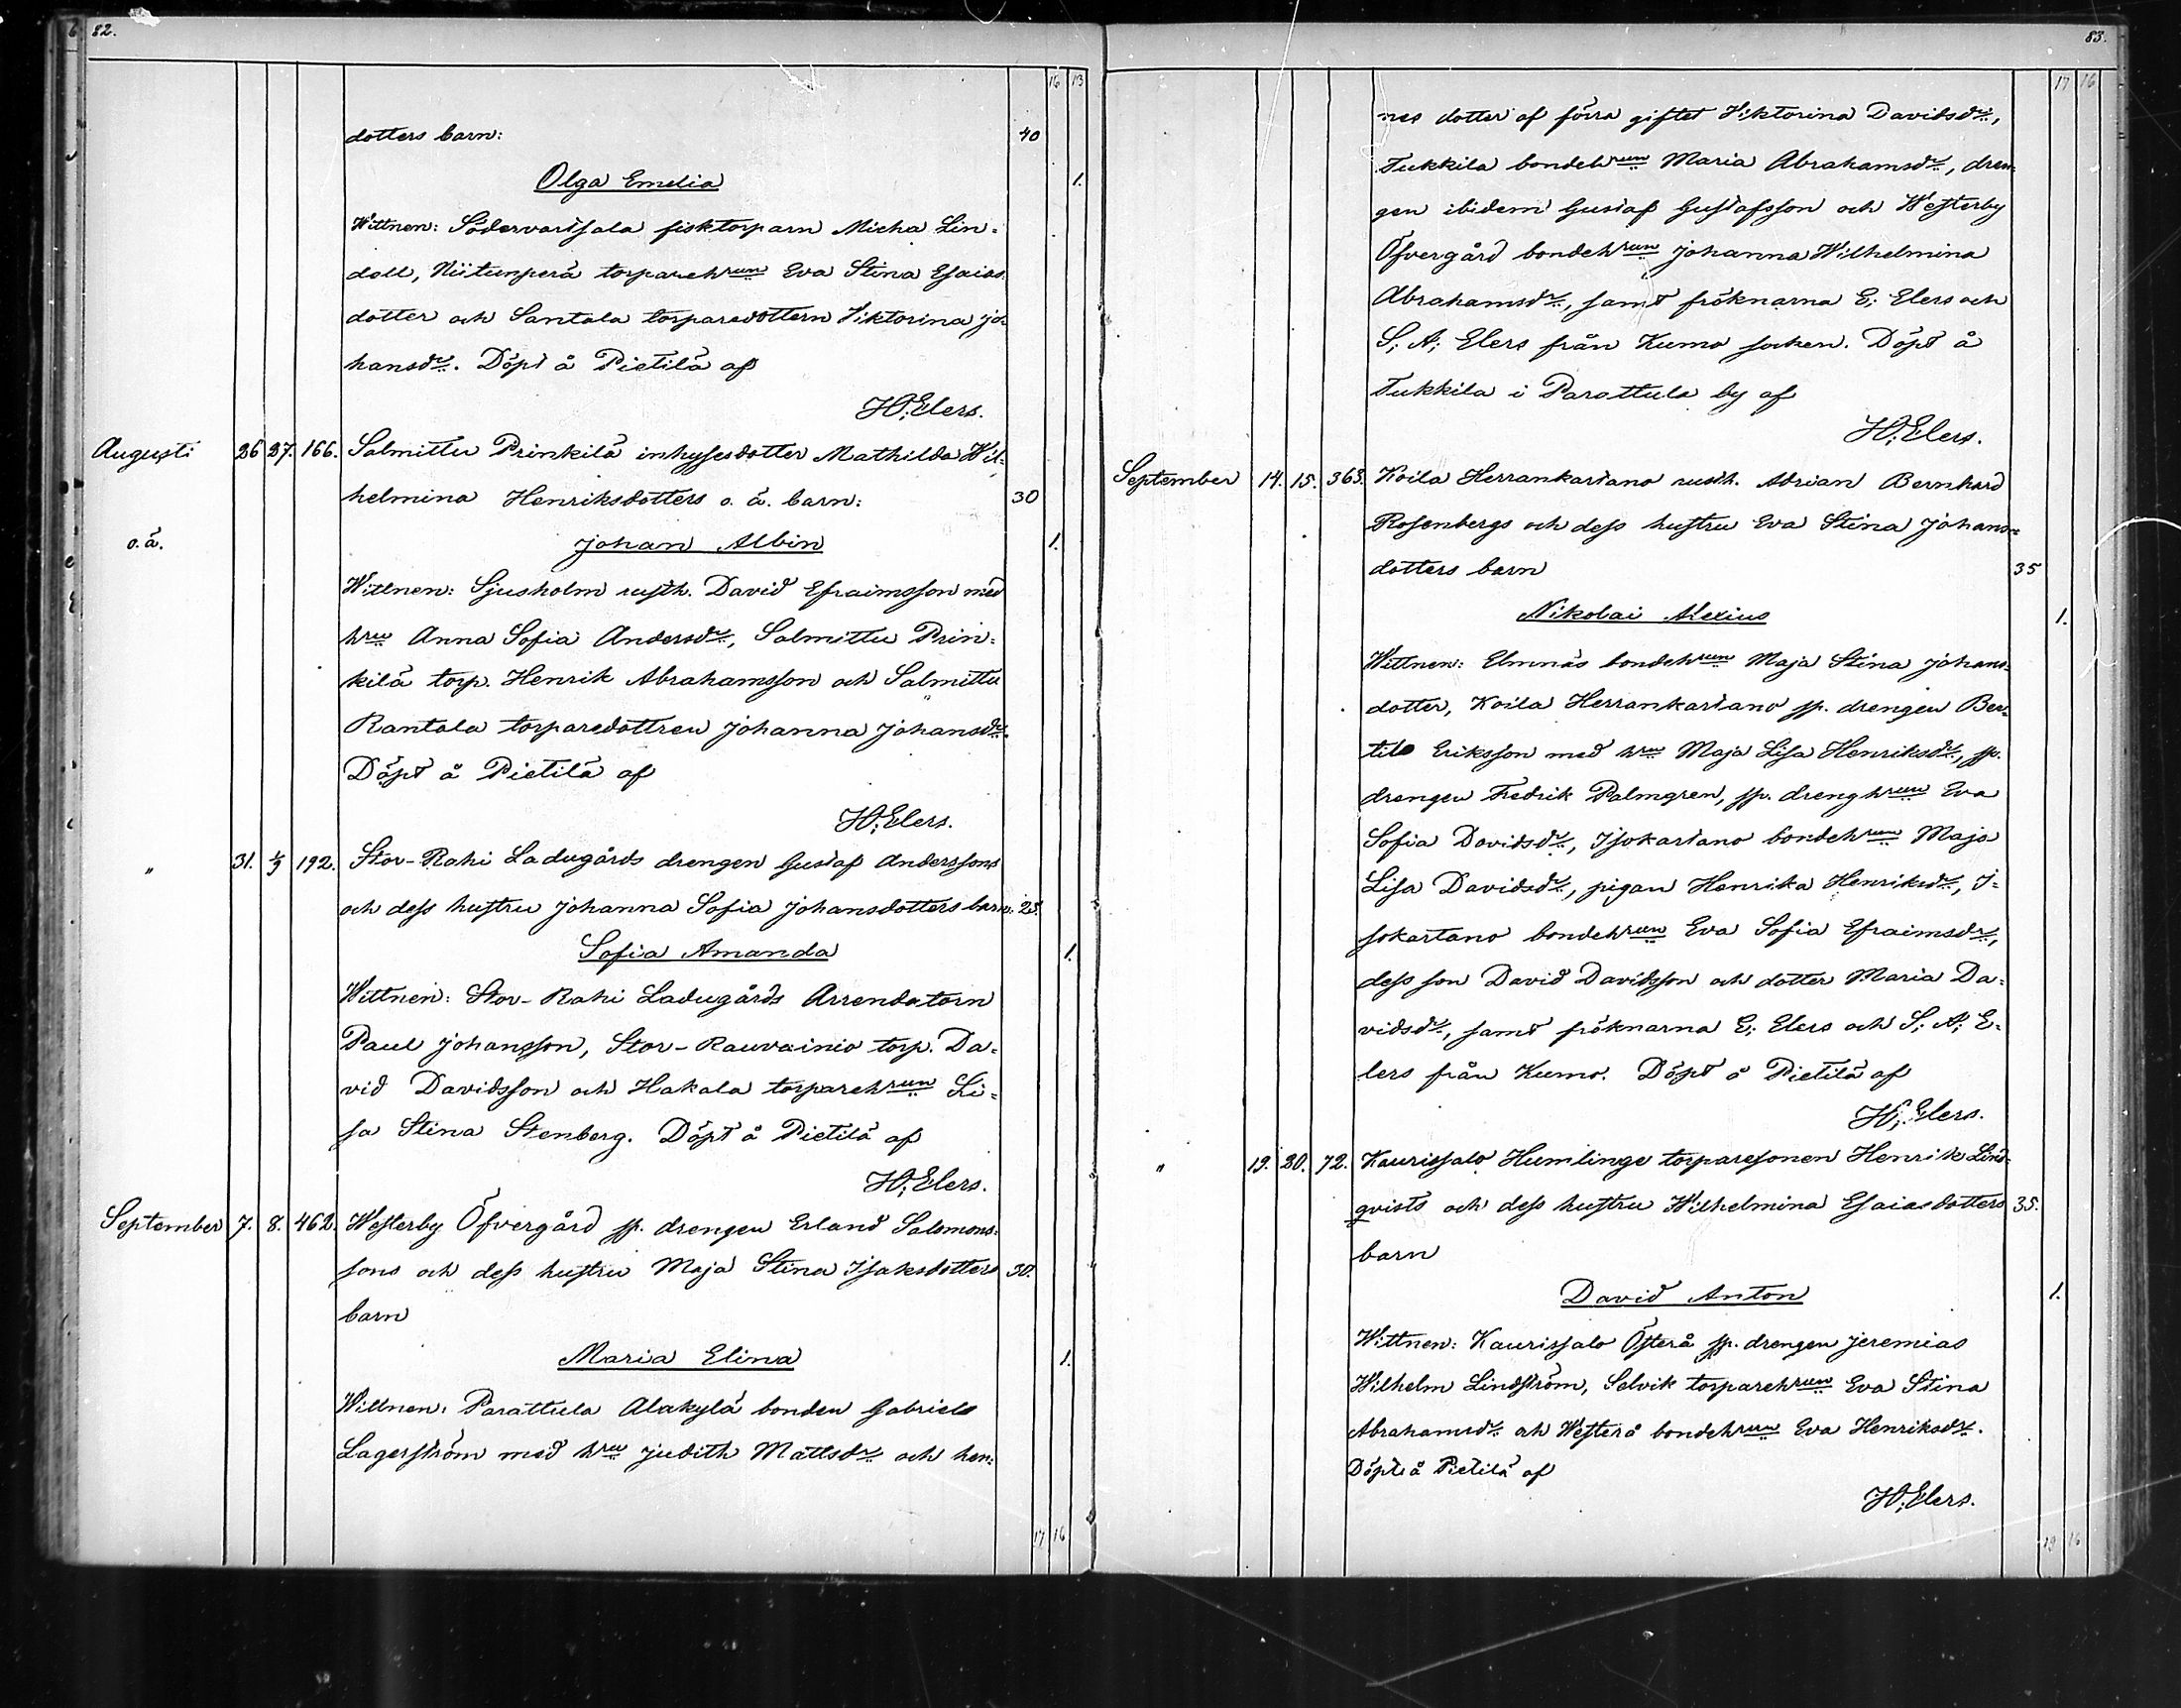 82.
16 13
dotters barn: 40
Olga Emelia 1.
Wittnen: Södervartsala fisktorparn Micha Lin=
doll, Niitunperä torparehrun Eva Stina Esaias
dotter och Santala torparedottern Viktorina Jo=
hansdr. Döpt å Pietilä af
H; Elers.
Augusti 26 27. 166. Salmittu Prinkilä inhysesdotter Mathilda Wil=
helmina Henriksdotters o. ä. barn: 30
o. ä. Johan Albin 1.
Wittnen: Sjusholm rusth. David Efraimsson med
hru Anna Sofia Andersdr, Salmittu Prin=
kilä torp. Henrik Abrahamsson och Salmittu
Rantala torparedottren Johanna Johansdr.
Döpt å Pietilä af
H; Elers.
" 31. 1/9 192. Stor-Rahi Ladugårds drengen Gustaf Anderssons
och dess hustru Johanna Sofia Johansdotters barn: 25.
Sofia Amanda 1.
Wittnen: Stor-Rahi Ladugårds Arrendatorn
Paul Johansson, Stor-Rauvainio torp. Da=
vid Davidsson och Hakala torparehrun Li=
sa Stina Stenberg. Döpt å Pietilä af
H; Elers.
September 7. 8. 462. Westerby Öfvergård sp. drengen Erland Salomons=
sons och dess hustru Maja Stina Isaksdotters 30.
barn
Maria Elina 1.
Wittnen: Parattula Alakylä bonden Gabriel
Lagerström med hru Judith Mattsdr och hen=
17 16
83.
17 16
nes dotter af förra giftet Viktorina Davidsdr,
Tukkila bondehrun Maria Abrahamsdr, dren=
gen ibidem Gustaf Gustafsson och Westerby
Öfvergård bondehrun Johanna Wilhelmina
Abrahamsdr, samt fröknarna E; Elers och
S; A; Elers från Kumo socken. Döpt å
Tukkila i Parattula by af
H; Elers.
September 14. 15. 363. Koila Herrankartano rusth. Adrian Bernhard
Rosenbergs och dess hustru Eva Stina Johans=
dotters barn 35
Nikolai Alexius 1.
Wittnen: Elmnäs bondehrun Maja Stina Johans=
dotter, Koila Herrankartano sp. drengen Ber=
til Eriksson med hru Maja Lisa Henriksdr, sp.
drengen Fredrik Palmgren, sp. drenghrun Eva
Sofia Davidsdr, Isokartano bondehrun Maja
Lisa Davidsdr, pigan Henrika Henriksdr, I=
sokartano bondehrun Eva Sofia Efraimsdr,
dess son David Davidsson och dotter Maria Da=
vidsdr, samt fröknarna E; Elers och S; A; E=
lers från Kumo. Döpt å Pietilä af
H; Elers.
" 19. 20. 72. Kaurissalo Humlinge torparesonen Henrik Lind=
qvists och dess hustru Wilhelmina Esaiasdotters 35.
barn
David Anton 1.
Wittnen: Kaurissalo Österå sp. drengen Jeremias
Wilhelm Lindström, Selvik torparehrun Eva Stina
Abrahamsdr och Westerå bondehrun Eva Henriksdr.
Döpt å Pietilä af
H; Elers.
19 16